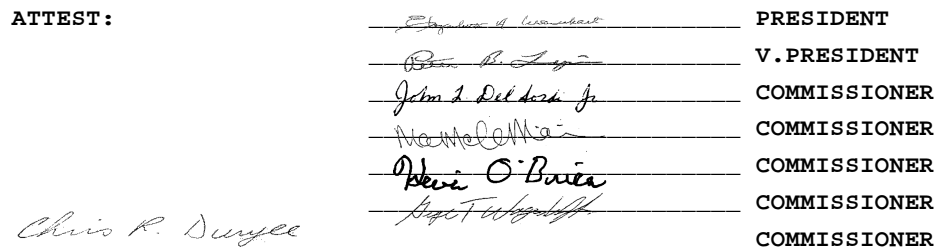 ATTEST: PRESIDENT
Peter B. V.PRESIDENT
John L. Del Sordi Jr COMMISSIONER
COMMISSIONER
Kevin O'Brien COMMISSIONER
COMMISSIONER
Chris R. Duryee COMMISSIONER